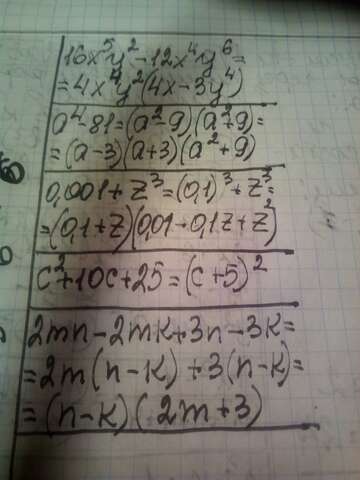 16x⁵y² - 12x⁴y⁶ =
= 4x⁴y²(4x - 3y⁴)
a⁴ - 81 = (a² - 9)(a² + 9) =
= (a - 3)(a + 3)(a² + 9)
0,001 + z³ = (0,1)³ + z³ =
= (0,1 + z)(0,01 - 0,1z + z²)
c² + 10c + 25 = (c + 5)²
2mn - 2mk + 3n - 3k =
= 2m(n - k) + 3(n - k) =
= (n - k)(2m + 3)